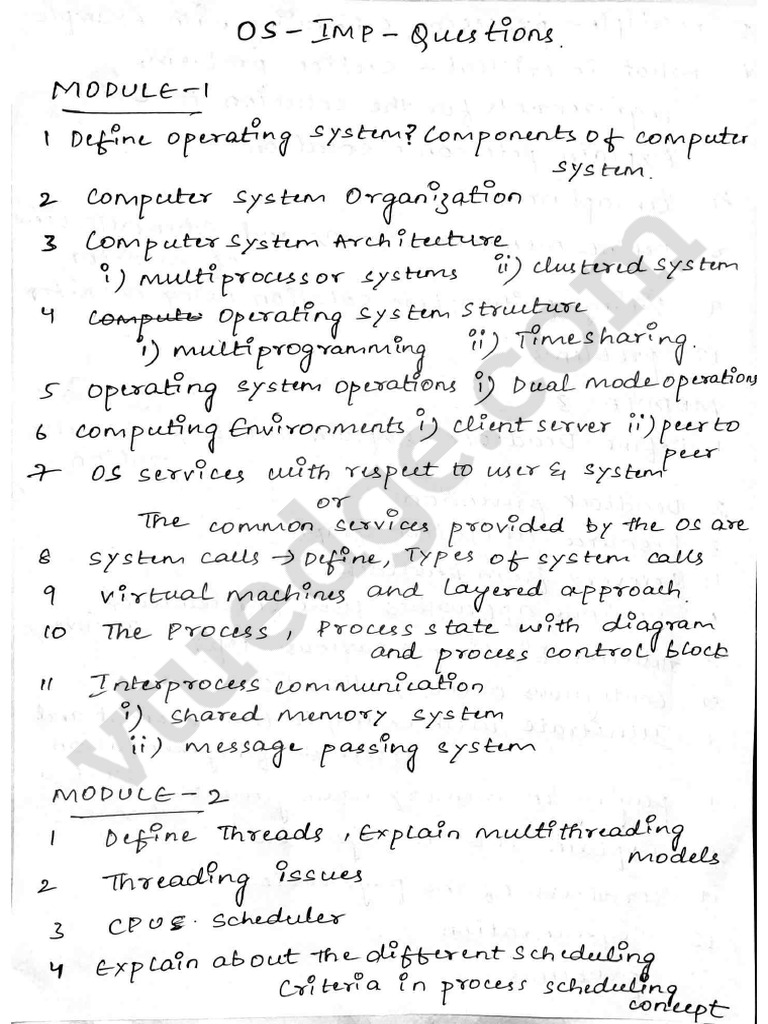 OS - IMP - Questions.
MODULE-1
1 Define operating system? Components of computer
system.
2 Computer system Organization
3 Computer system Architecture
i) multiprocessor systems ii) clustered system
4 Compute Operating system structure
i) multiprogramming ii) Timesharing.
5 Operating system operations i) Dual mode operations
6 Computing Environments i) client server ii) peer to
peer
7 OS services with respect to user & system
or
The common services provided by the OS are
8 System calls → Define, Types of system calls
9 Virtual machines and layered approach.
10 The Process, Process state with diagram
and process control block
11 Interprocess communication
i) shared memory system
ii) message passing system
MODULE-2
1 Define Threads, Explain multithreading
models
2 Threading issues
3 CPU scheduler
4 Explain about the different scheduling
Criteria in process scheduling
concept
vtuedge.com